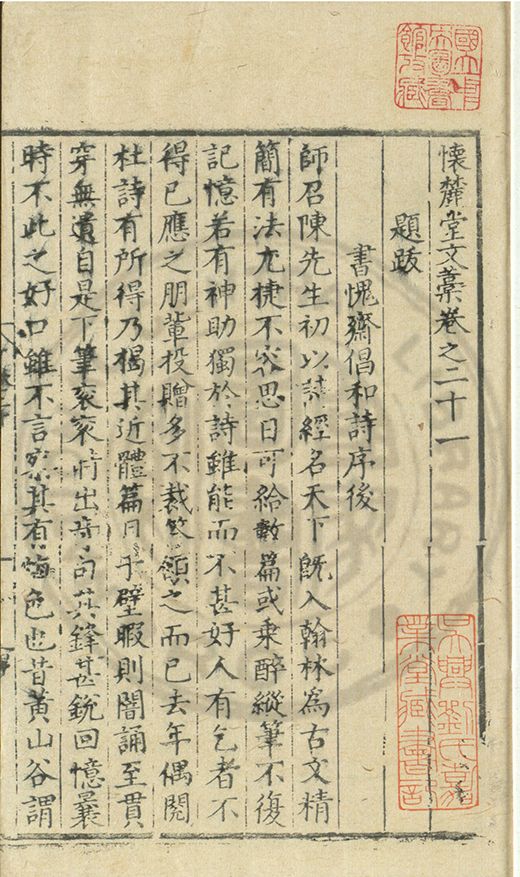 國立中央圖書館收藏
懷麓堂文藁卷之二十一
題跋
書愧齋倡和詩序後
師召陳先生初以詩經名天下既入翰林爲古文精
簡有法尤捷不容思日可給數篇或乗醉縱筆不復
記憶若有神助獨於詩雖能而不甚好人有乞者不
得已應之朋輩投贈多不裁答頷之而已去年偶閱
杜詩有所得乃揭其近體篇日于壁暇則闇誦至貫
穿無遺自是下筆衮衮時出奇句其鋒甚銳回憶曩
時不此之好口雖不言察其有悔色也昔黃山谷謂
吳興劉氏嘉業堂藏書記